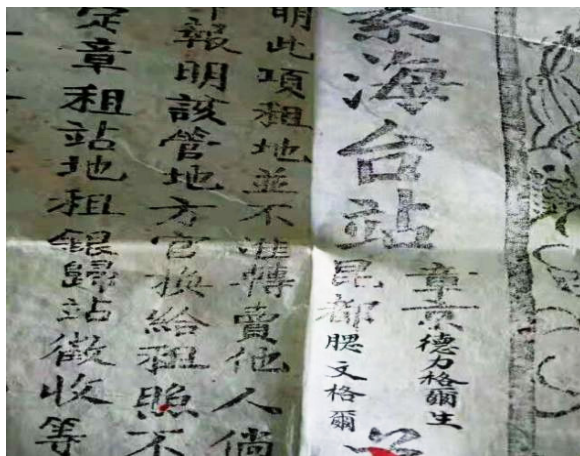 海台站
章京德力格爾生
昆都腮文格爾
明此項租地並不准轉賣他人倘
報明該管地方官換給租照不
定章租站地租銀歸站徵收等